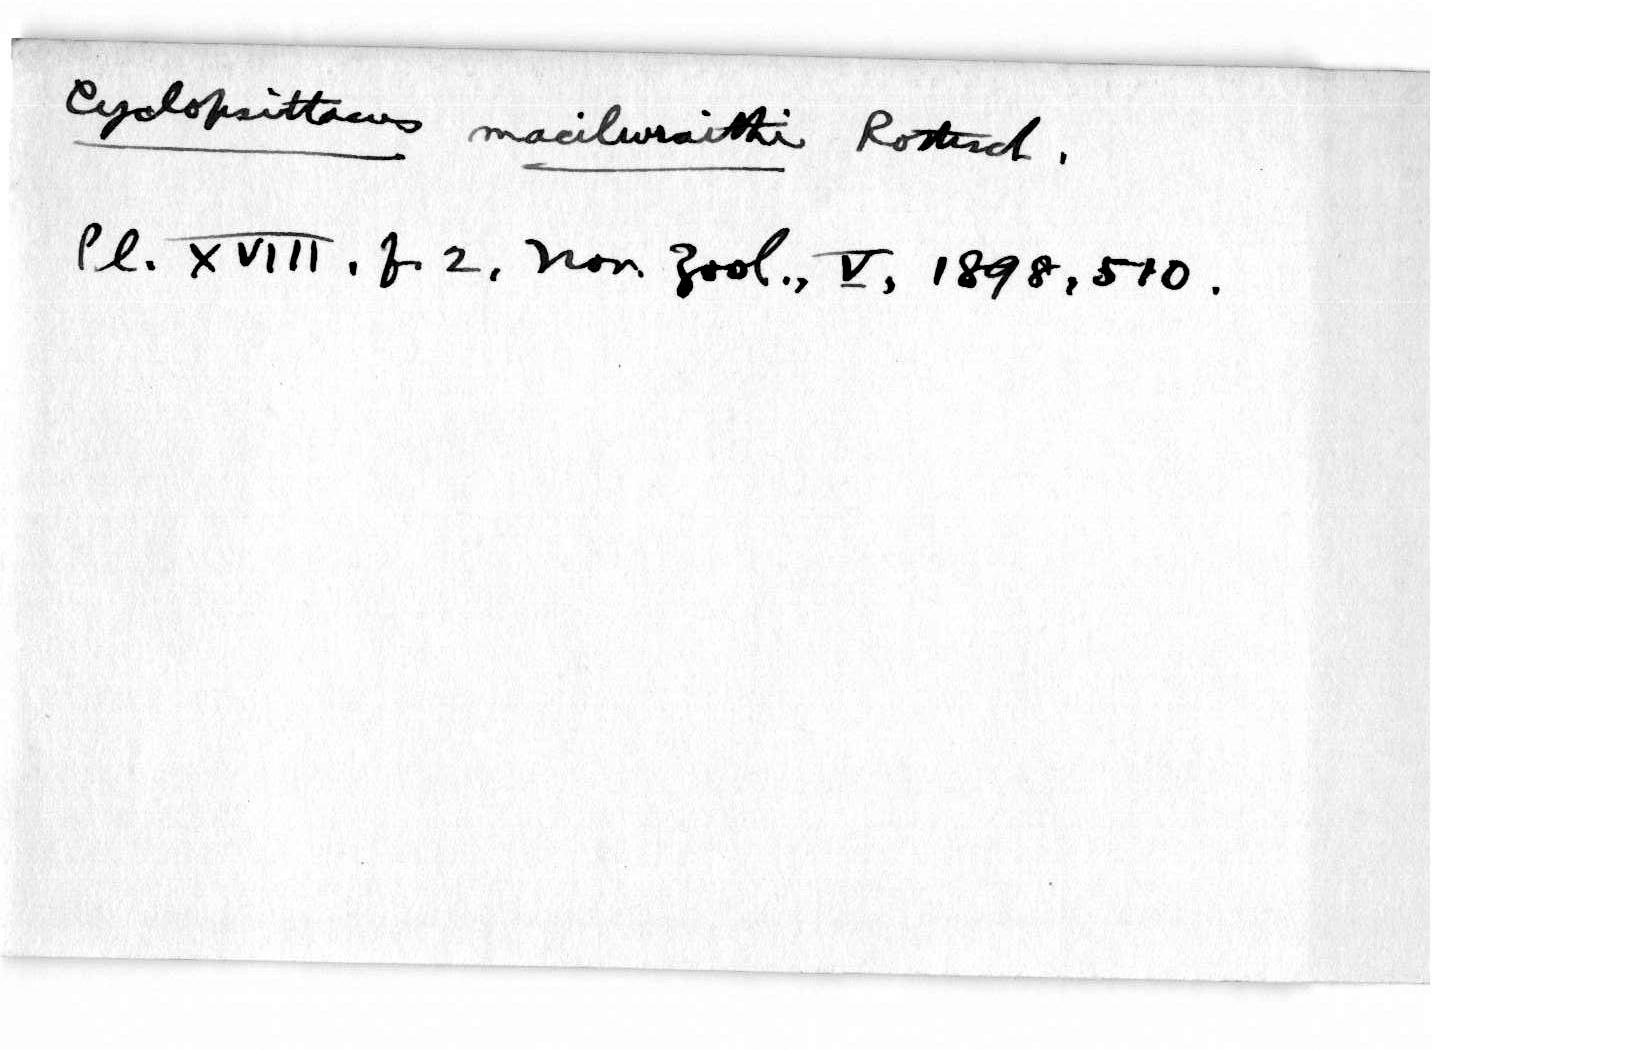 Cyclopsittacus macilwraithi Rothsch.
Pl. XVIII, f. 2, Nov. Zool., V, 1898, 510.